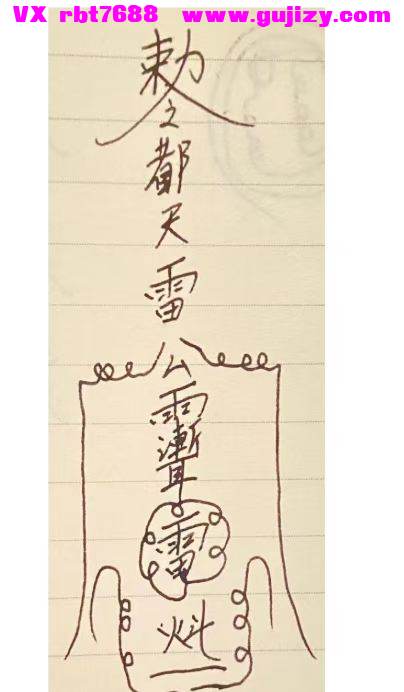 VX rbt7688 www.gujizy.com
敕
之
都
天
雷
公
雷
火